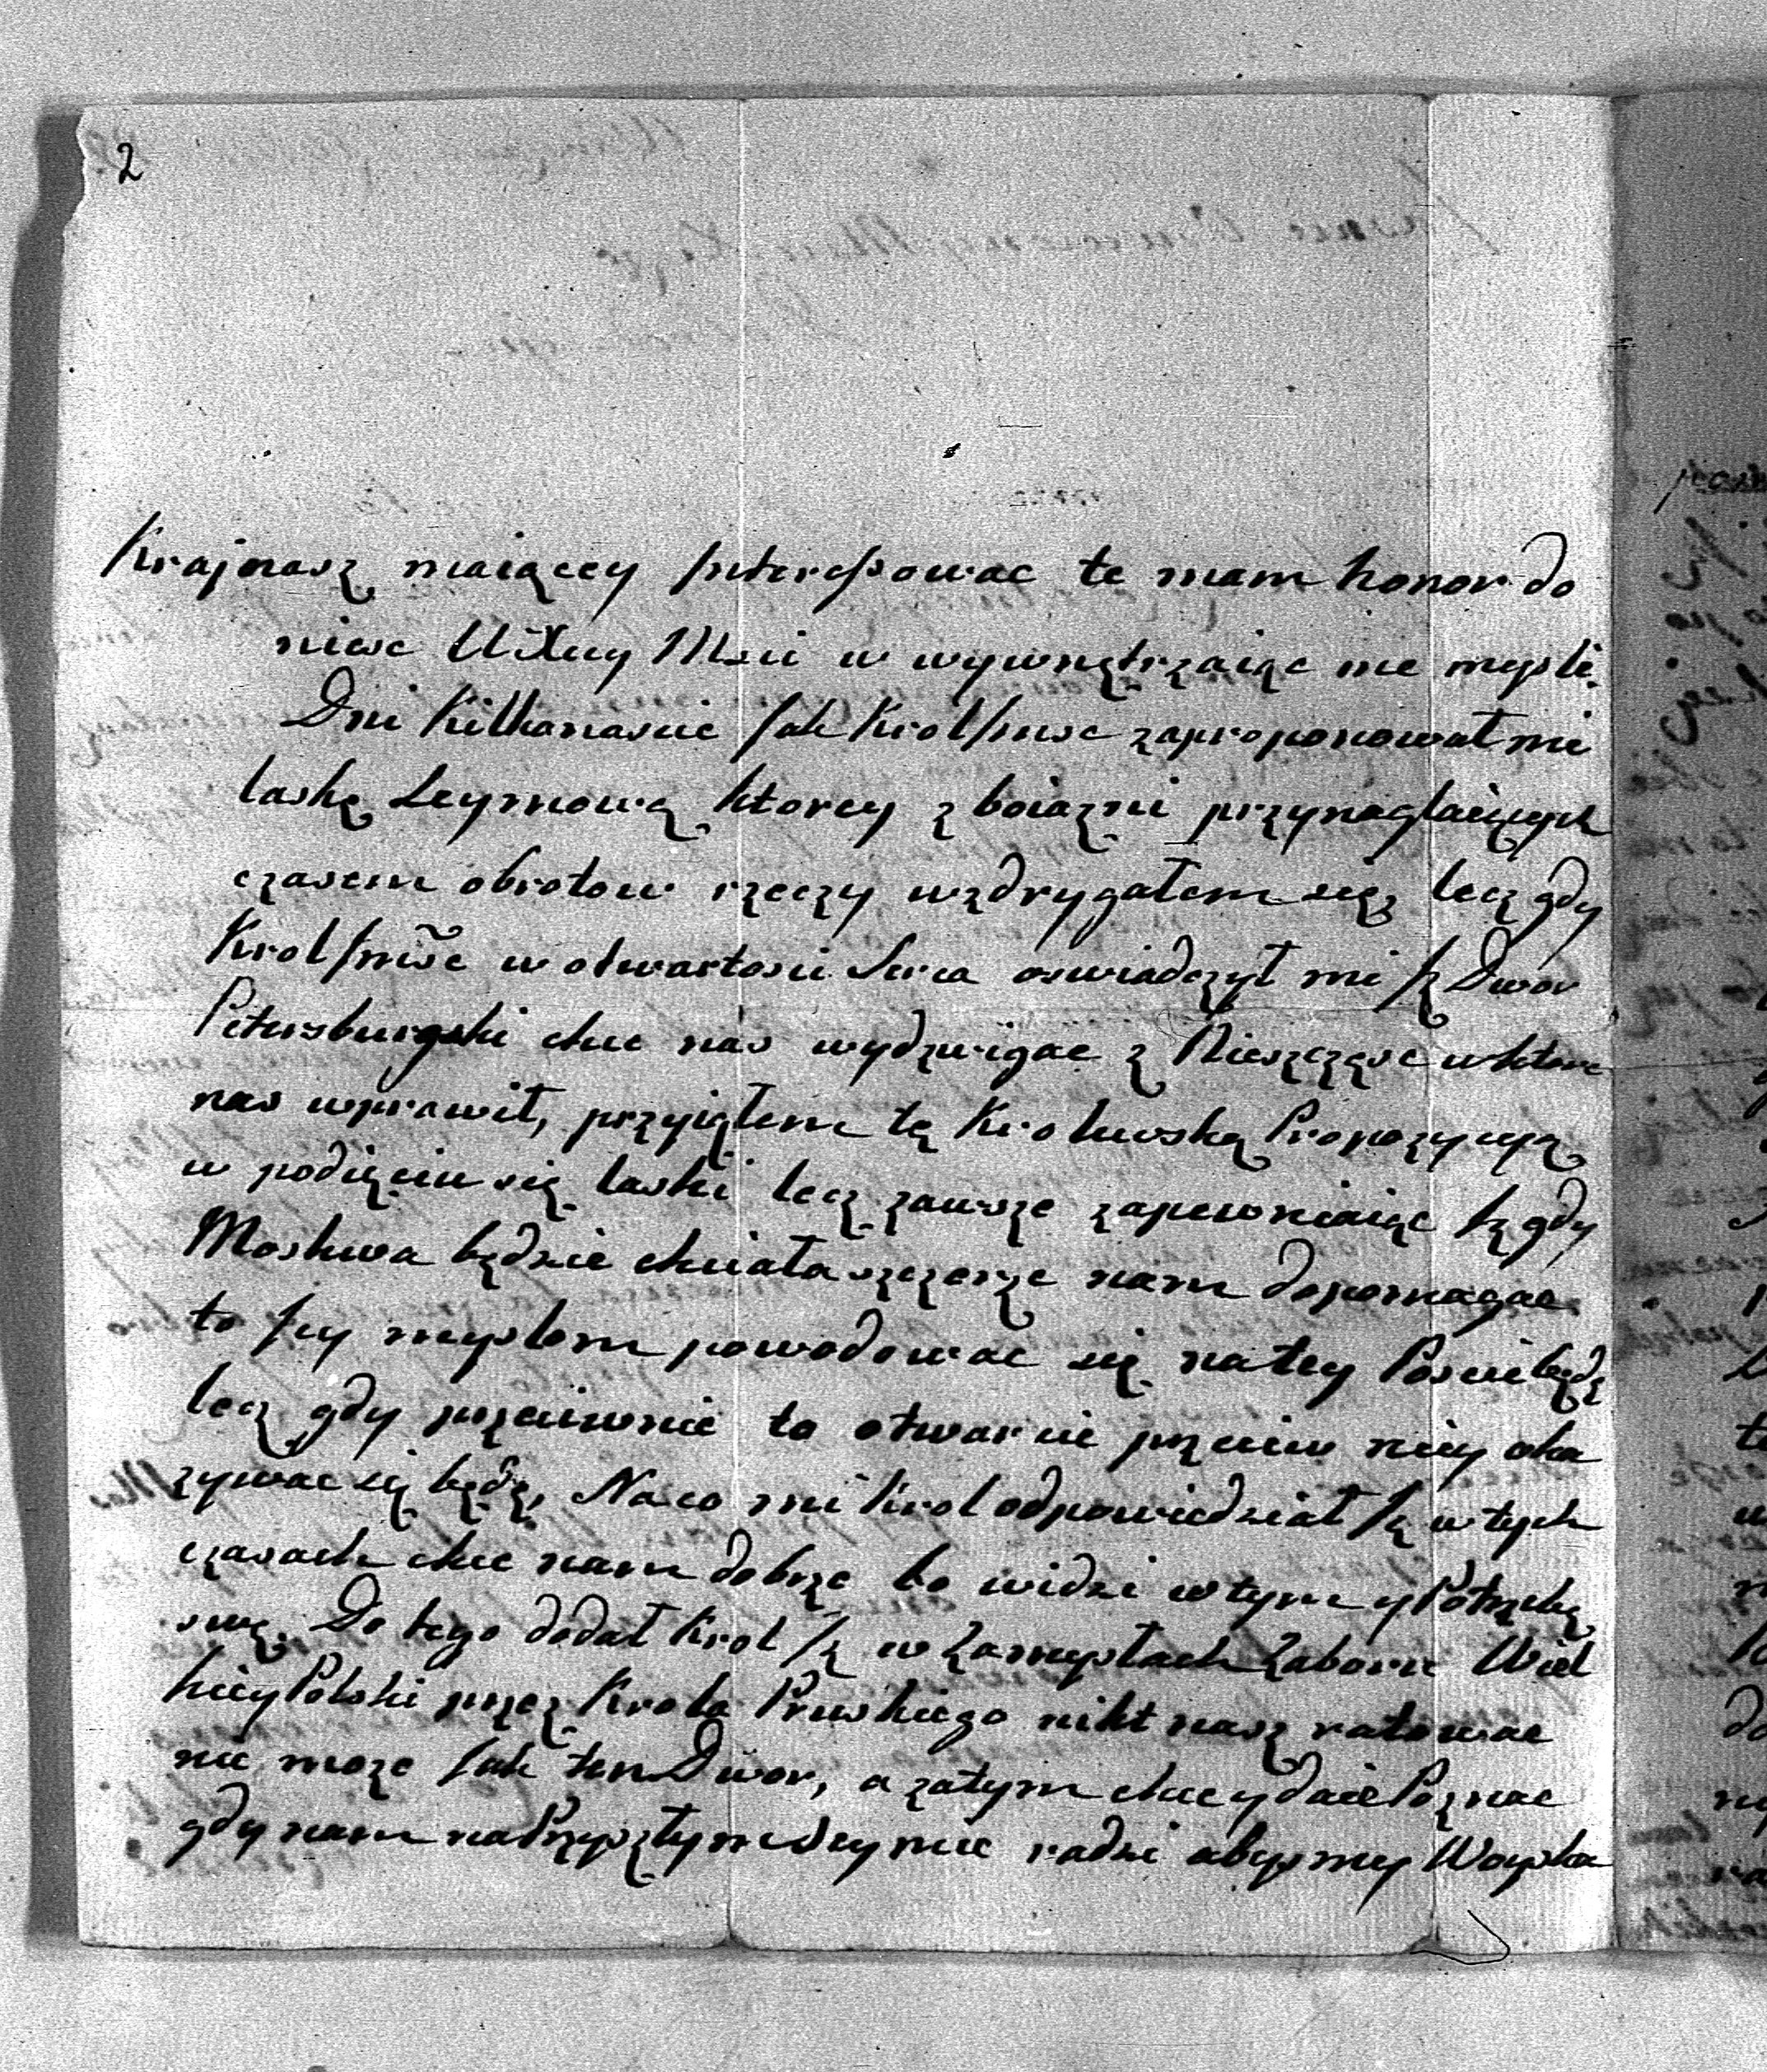 2
Kraj nasz maiącey Interessowac te mam honor do
niesc WXcey Msci w wywnętrzaiąc me mysli.
Dni Kilkanascie Jak Krol Jmsc zaproponował mie
laskę Seymową ktorey z boiazni przynaglaiących
czasem obrotow rzeczy wzdrygałem się, lecz gdy
Krol Jmsc w otwartosci Serca oswiadczył mi Jż Dwor
Petersburgski chce nas wydzwigac z Nieszczęsc w ktore
nas wprawił, przyiąłem tę Krolewską Propozycyą
w podięciu się laski lecz zawsze zapewniaiąc Jż gdy
Moskwa będzie chciała szczerze nam dopomagac
to Jey myslom powodowac się na tey Poscii będę
lecz gdy przeciwnie to otwarcie przeciw niey oka
zywac się będę, Na co mi Krol odpowiedział Jż w tych
czasach chce nam dobrze bo widzi w tym y Potrzebę
swę. Do tego dodał Krol Jż w Zamysłach Zaboru Wiel
kiey Polski przez Krola Pruskiego nikt nasz ratowac
nie moze Jak ten Dwor, a zatym chce y daie Poznac
gdy nam na Przyszłym Seymie radzi abysmy Woyska